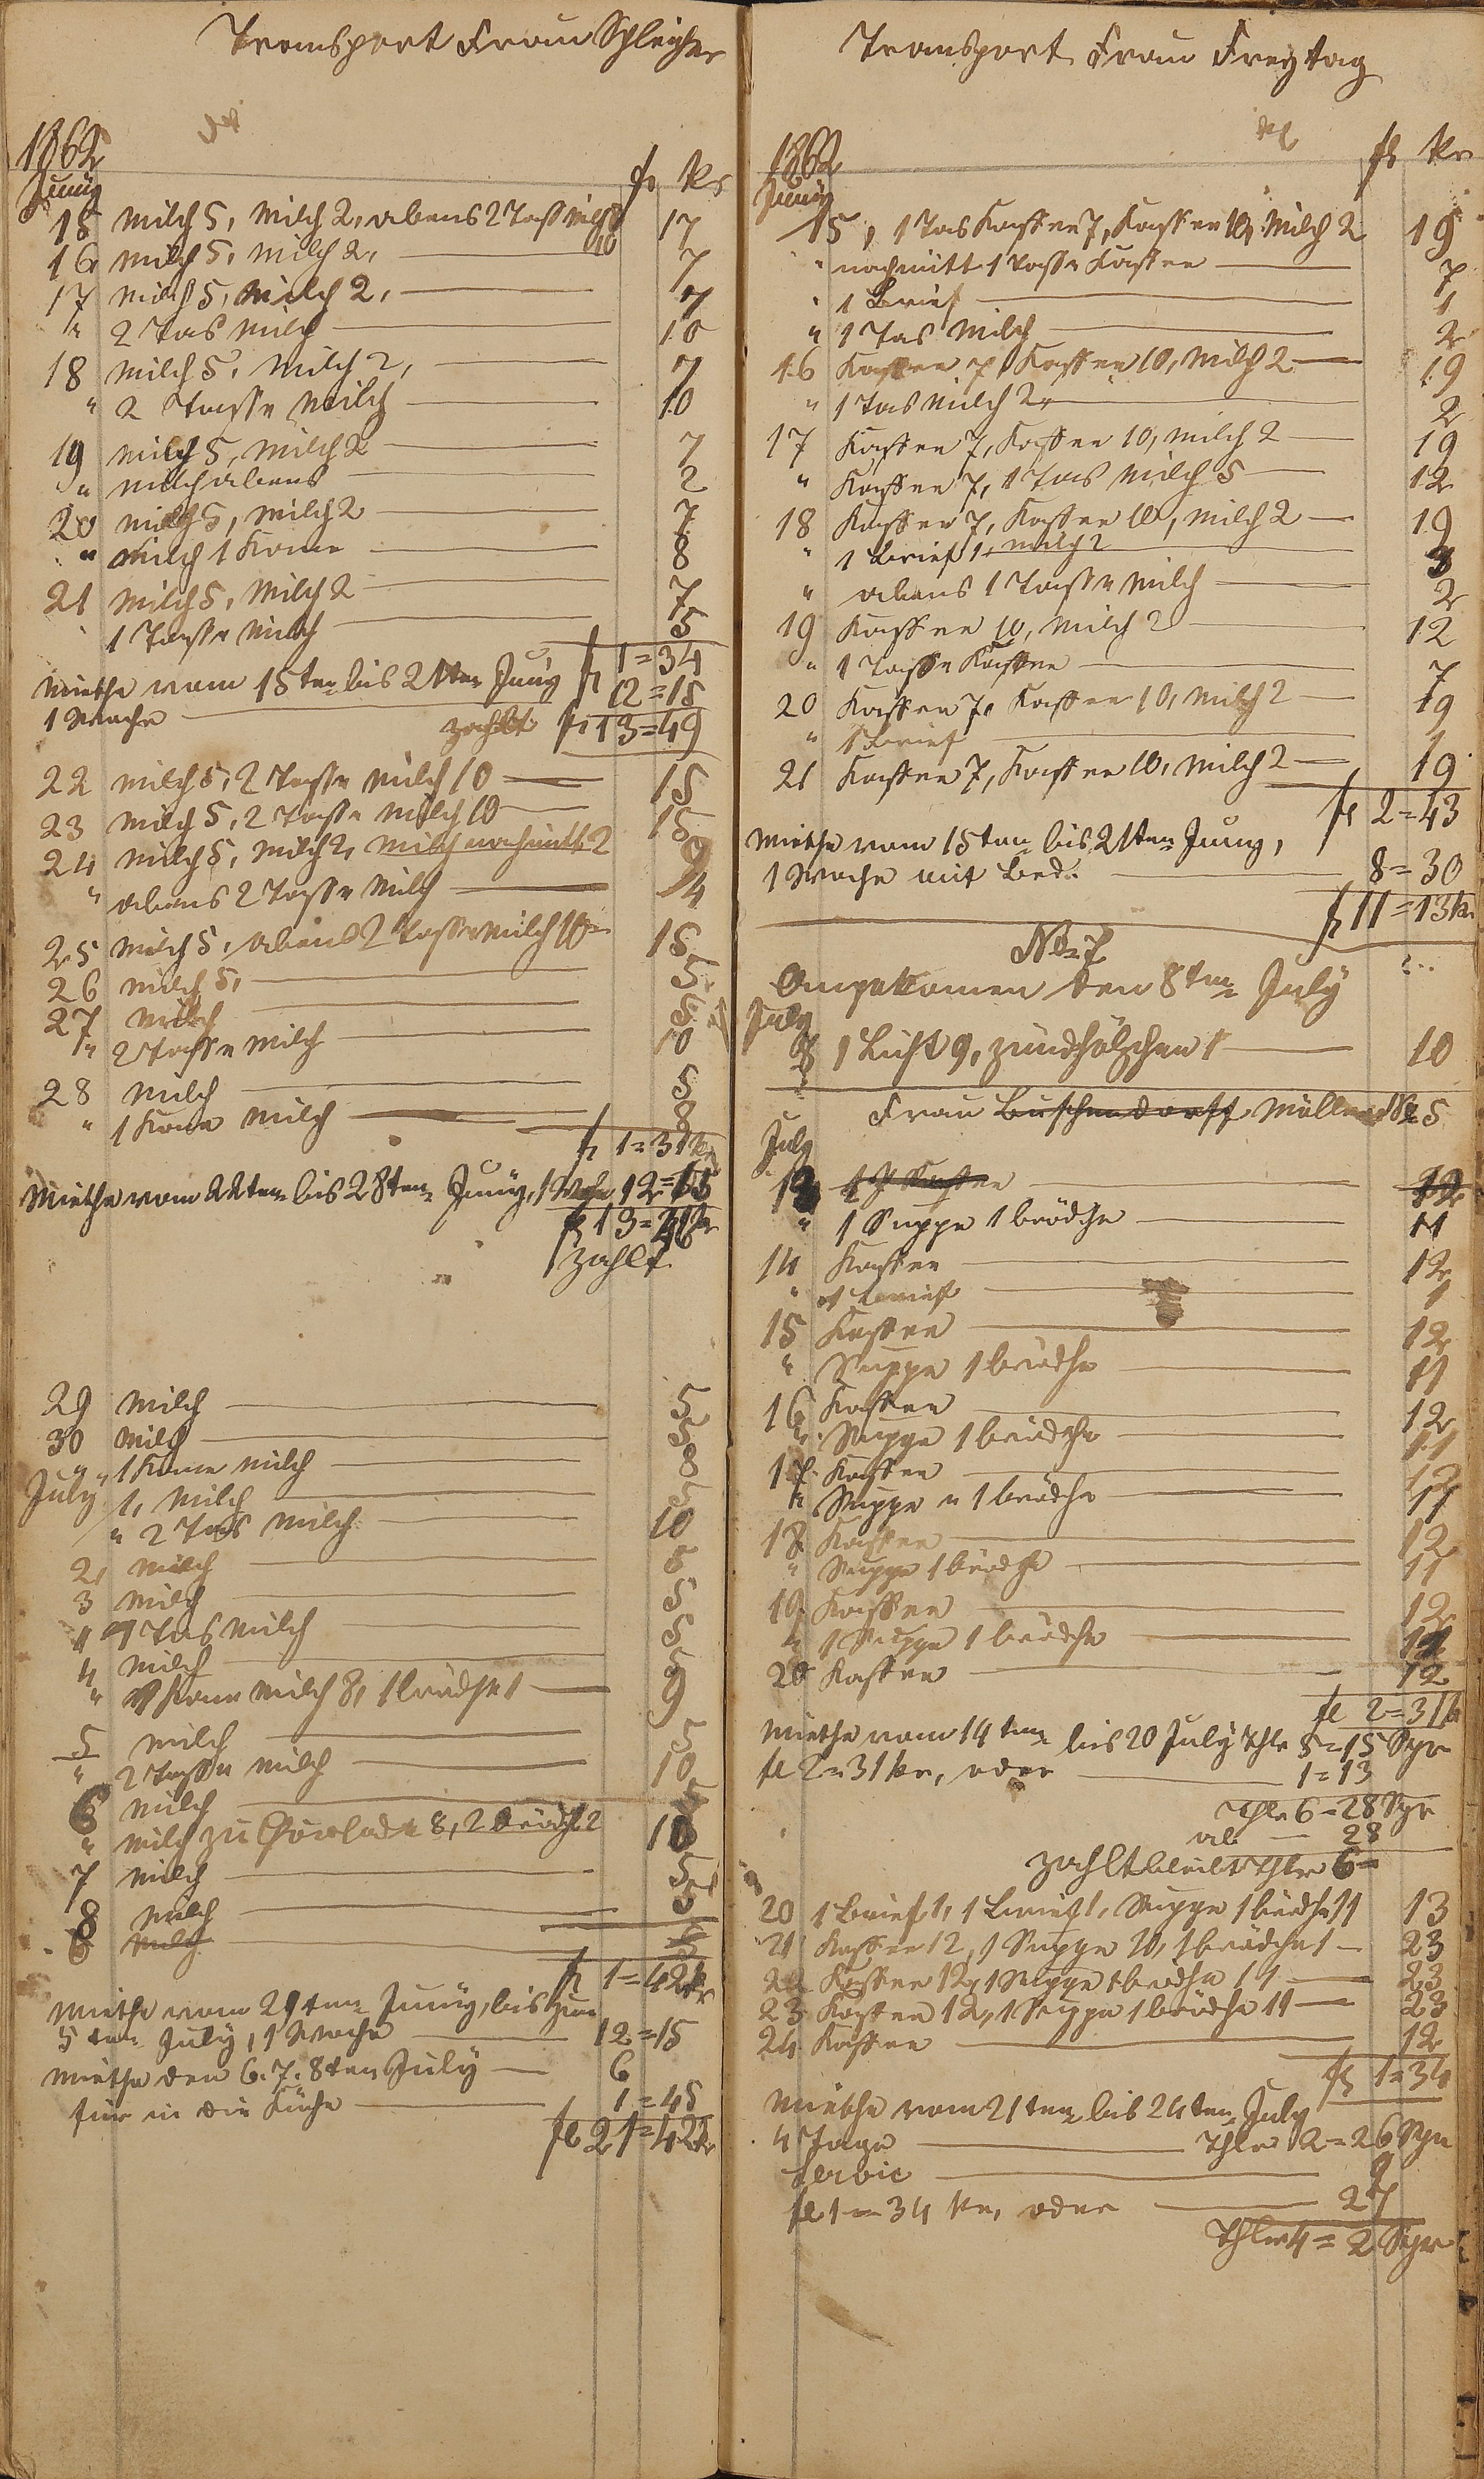 Transport Frau Schleicher
1862
Juny
fl kr
15 Milch 5, Milch 2, abens 2 Tass Milch 10 17
16 Milch 5, Milch 2, 7
17 Milch 5, Milch 2, 7
" 2 Tas Milch 10
18 Milch 5, Milch 2, 7
" 2 Tasse Milch 10
19 Milch 5, Milch 2 7
" Milch abens 2
20 Milch 5, Milch 2 7
" Milch 1 Kane 8
21 Milch 5, Milch 2 7
1 Tasse Milch 5
fl 1=34
Miethe vom 15ten bis 21ten Juny 12=15
1 Woche zahlt fl 13=49
22 Milch 5, 2 Tasse Milch 10 15
23 Milch 5, 2 Tasse Milch 10 15
24 Milch 5, Milch 2, Milch nachmitt 2 9
" abens 2 Tasse Milch 4
25 Milch 5, abens 2 Tasse Milch 10 15
26 Milch 5, 5
27 Milch 5
" 2 Tasse Milch 10
28 Milch 5
" 1 Kane Milch 8
fl 1=31 kr
Miethe vom 22ten bis 28ten Juny, 1 Woche 12=15
fl 13=46
zahlt
29 Milch 5
30 Milch 5
" 1 Kane Milch 8
July 1, Milch 5
" 2 Tas Milch 10
2, Milch 5
3 Milch 5
" 1 Tas Milch 5
4 Milch 5
" 1 Kane Milch 8, 1 brödche 1 9
5 Milch 5
" 2 Tasse Milch 10
6 Milch 5
" Milch zu Chocolade 8, 2 brödch 2 10
7 Milch 5
8 Milch 5
8 Milch 5
fl 1=42 kr
Miethe vom 29ten Juny, bis zum
5ten July, 1 Woche 12=15
Miethe den 6. 7. 8ten July 6
für in die Küche 1=45
fl 21=42 kr
Transport Frau Freytag
1862
Juny
fl kr
15, 1 Tas Kaffee 7, Kaffee 10, Milch 2 19
" nachmitt 1 Tasse Kaffee 7
" 1 Brief 1
" 1 Tas Milch 2
16 Kaffee 7, Kaffee 10, Milch 2 19
" 1 Tas Milch 2, 2
17 Kaffee 7, Kaffee 10, Milch 2 19
" Kaffee 7, 1 Tas Milch 5 12
18 Kaffee 7, Kaffee 10, Milch 2 19
" 1 Brief 1, Milch 2 3
" abens 1 Tasse Milch 2
19 Kaffee 10, Milch 2 12
" 1 Tasse Kaffee 7
20 Kaffee 7, Kaffee 10, Milch 2 19
" 1 Brief 1
21 Kaffee 7, Kaffee 10, Milch 2 19
fl 2=43
Miethe vom 15ten bis 21ten Juny,
1 Woche mit Bed. 8=30
fl 11=13 kr
No 7
Angekomen den 8ten July
July
8 1 Licht 9, zündhölzchen 1 10
Frau Buschendorff Müller No 5
July
13 1 P Kaffee 12
" 1 Suppe 1 brödche 11
14 Kaffee 12
" 1 Brief 1
15 Kaffee 12
" Suppe 1 brödche 11
16 Kaffee 12
" Suppe 1 brödche 11
17 Kaffee 12
" Suppe u 1 brödche 11
18 Kaffee 12
" Suppe 1 brödche 11
19 Kaffee 12
" 1 Suppe 1 brödche 11
20 Kaffee 12
fl 2=31 kr
Miethe vom 14ten bis 20 July Thlr 5=15 Sgr
fl 2=31 kr, oder 1=13
Thlr 6=28 Sgr
ab 28
zahlt bleibt Thlr 6=
20 1 Brief 1, 1 Brief 1, Suppe 1 brödche 11 13
21 Kaffee 12, 1 Suppe 10, 1 brödche 1 23
22 Kaffee 12, 1 Suppe 1 brödche 11 23
23 Kaffee 12, 1 Suppe 1 brödche 11 23
24 Kaffee 12
fl 1=34
Miethe vom 21ten bis 24ten July
4 Tage Thlr 2=26 Sgr
Servic 9
fl 1=34 kr, oder 27
Thlr 4=2 Sgr